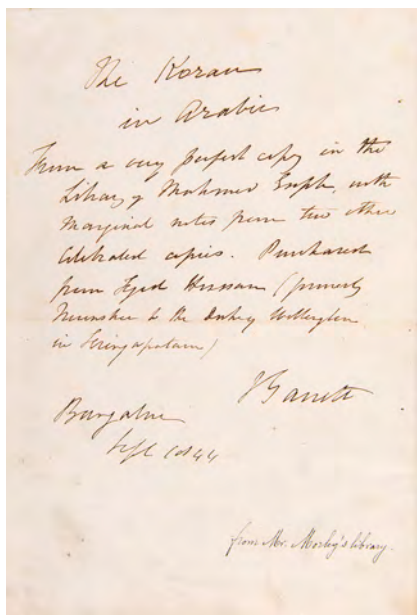 The Koran
in Arabic
From a very perfect copy in the
Library of Mahmud, with
Marginal notes from two other
Celebrated copies. Purchased
from Syed Hussain (formerly
Moonshee to the Duke of Wellington
in Seringapatam)
J Garrett
Bangalore
Sept 1844
from Mr. Morley's library.